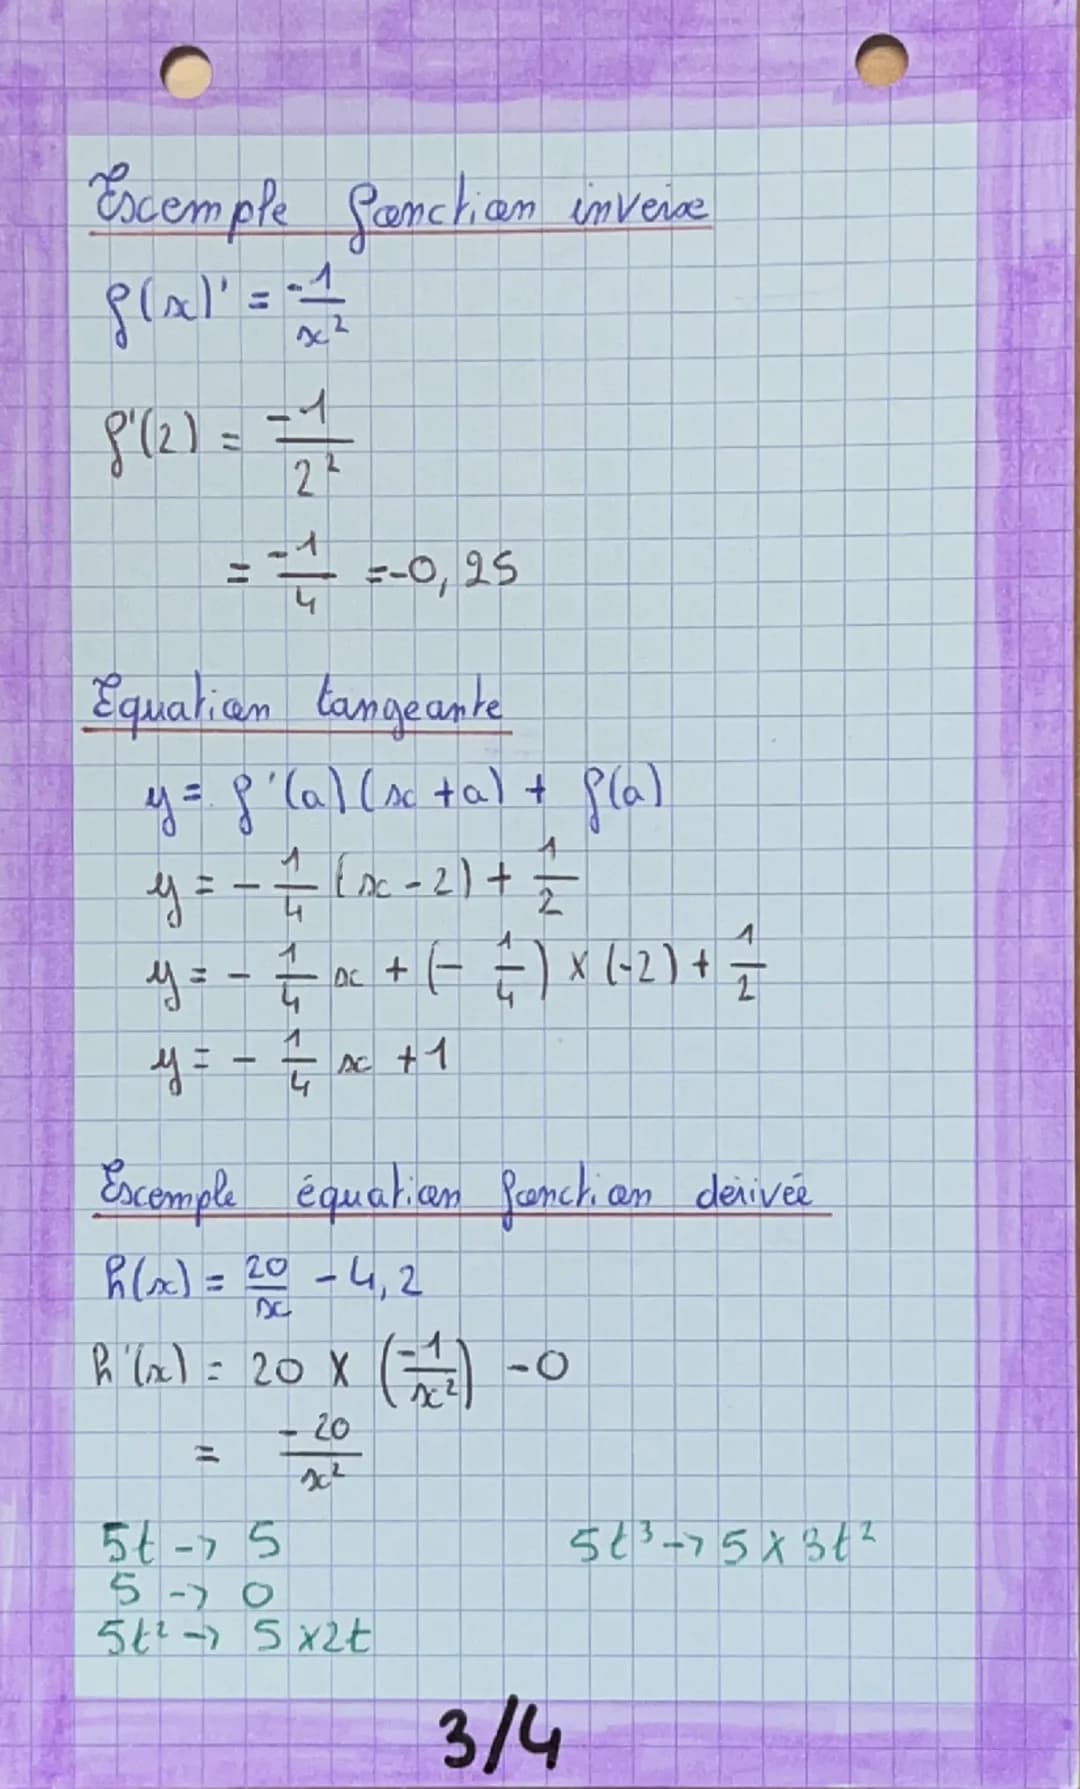 Exemple fonction inverse
f(x)' = -1/x²
f'(2) = -1/2²
= -1/4 = -0,25
Equation tangeante
y = f'(a)(x+a) + f(a)
y = - 1/4 (x-2) + 1/2
y = - 1/4 x + (- 1/4) × (-2) + 1/2
y = - 1/4 x + 1
Exemple équation fonction dérivée
h(x) = 20/x - 4,2
h'(x) = 20 × (-1/x²) - 0
= -20/x²
5t -> 5 5t³ -> 5 × 3t²
5 -> 0
5t² -> 5 × 2t
3/4